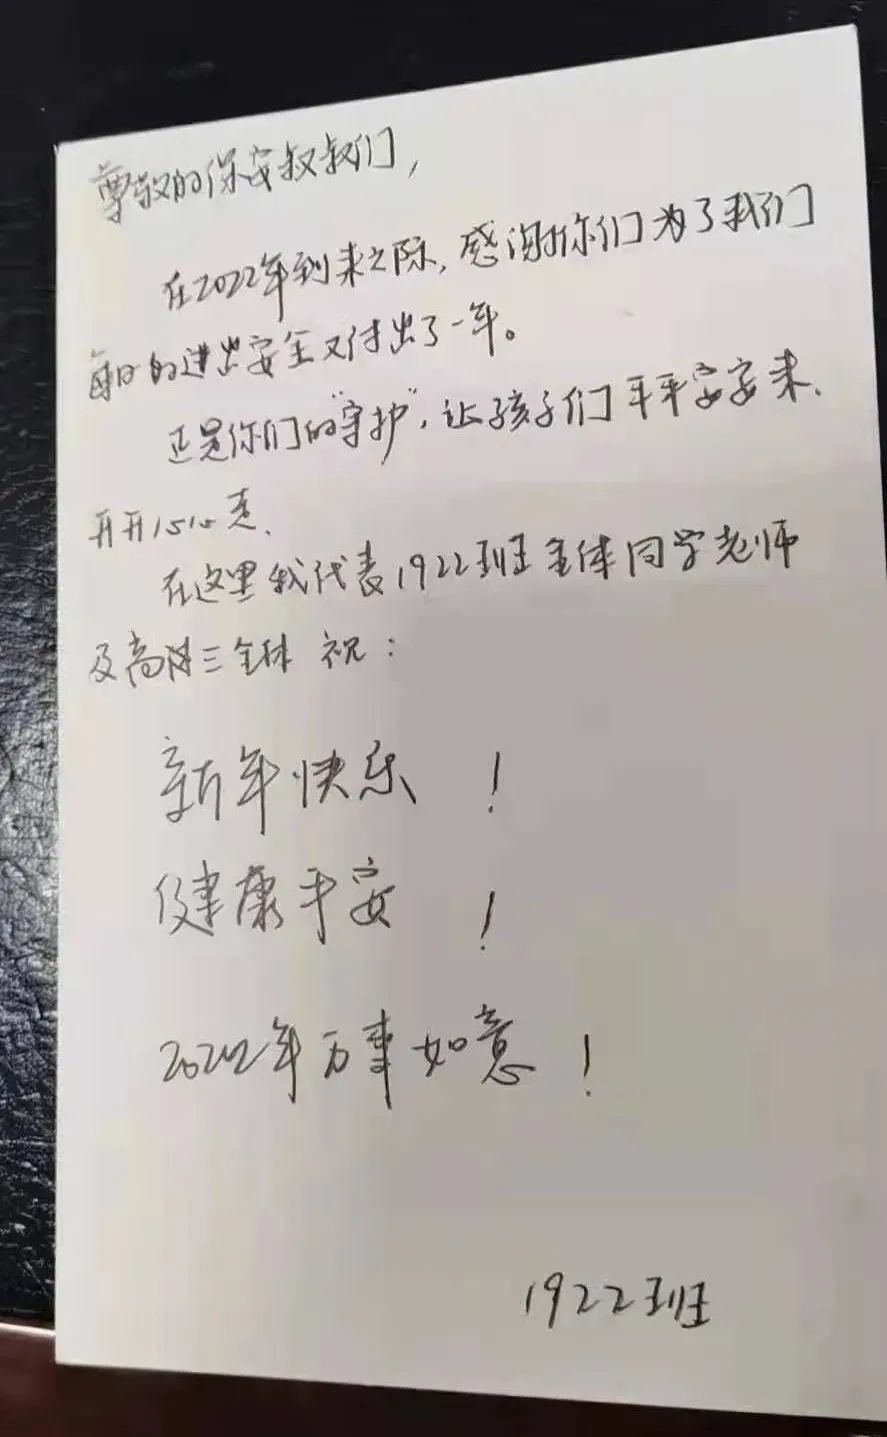 尊敬的保安叔叔们,
在2022年到来之际,感谢你们为了我们
每日的进出安全又付出了一年。
正是你们的"守护",让孩子们平平安安来、
开开心心走、
在这里我代表1922班全体同学老师
及高三全体 祝:
新年快乐 !
健康平安 !
2022年万事如意 !
1922班